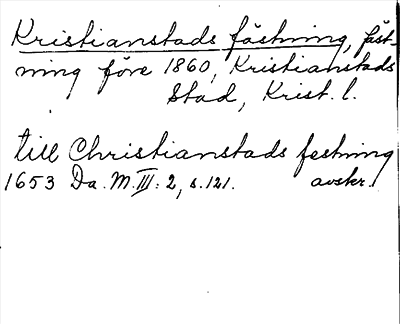 Kristianstads fästning, fäst-
ning före 1860, Kristianstads
Stad, Krist. l.
till Christianstads festning
1653 Da. M. III: 2, s. 121. avskr.